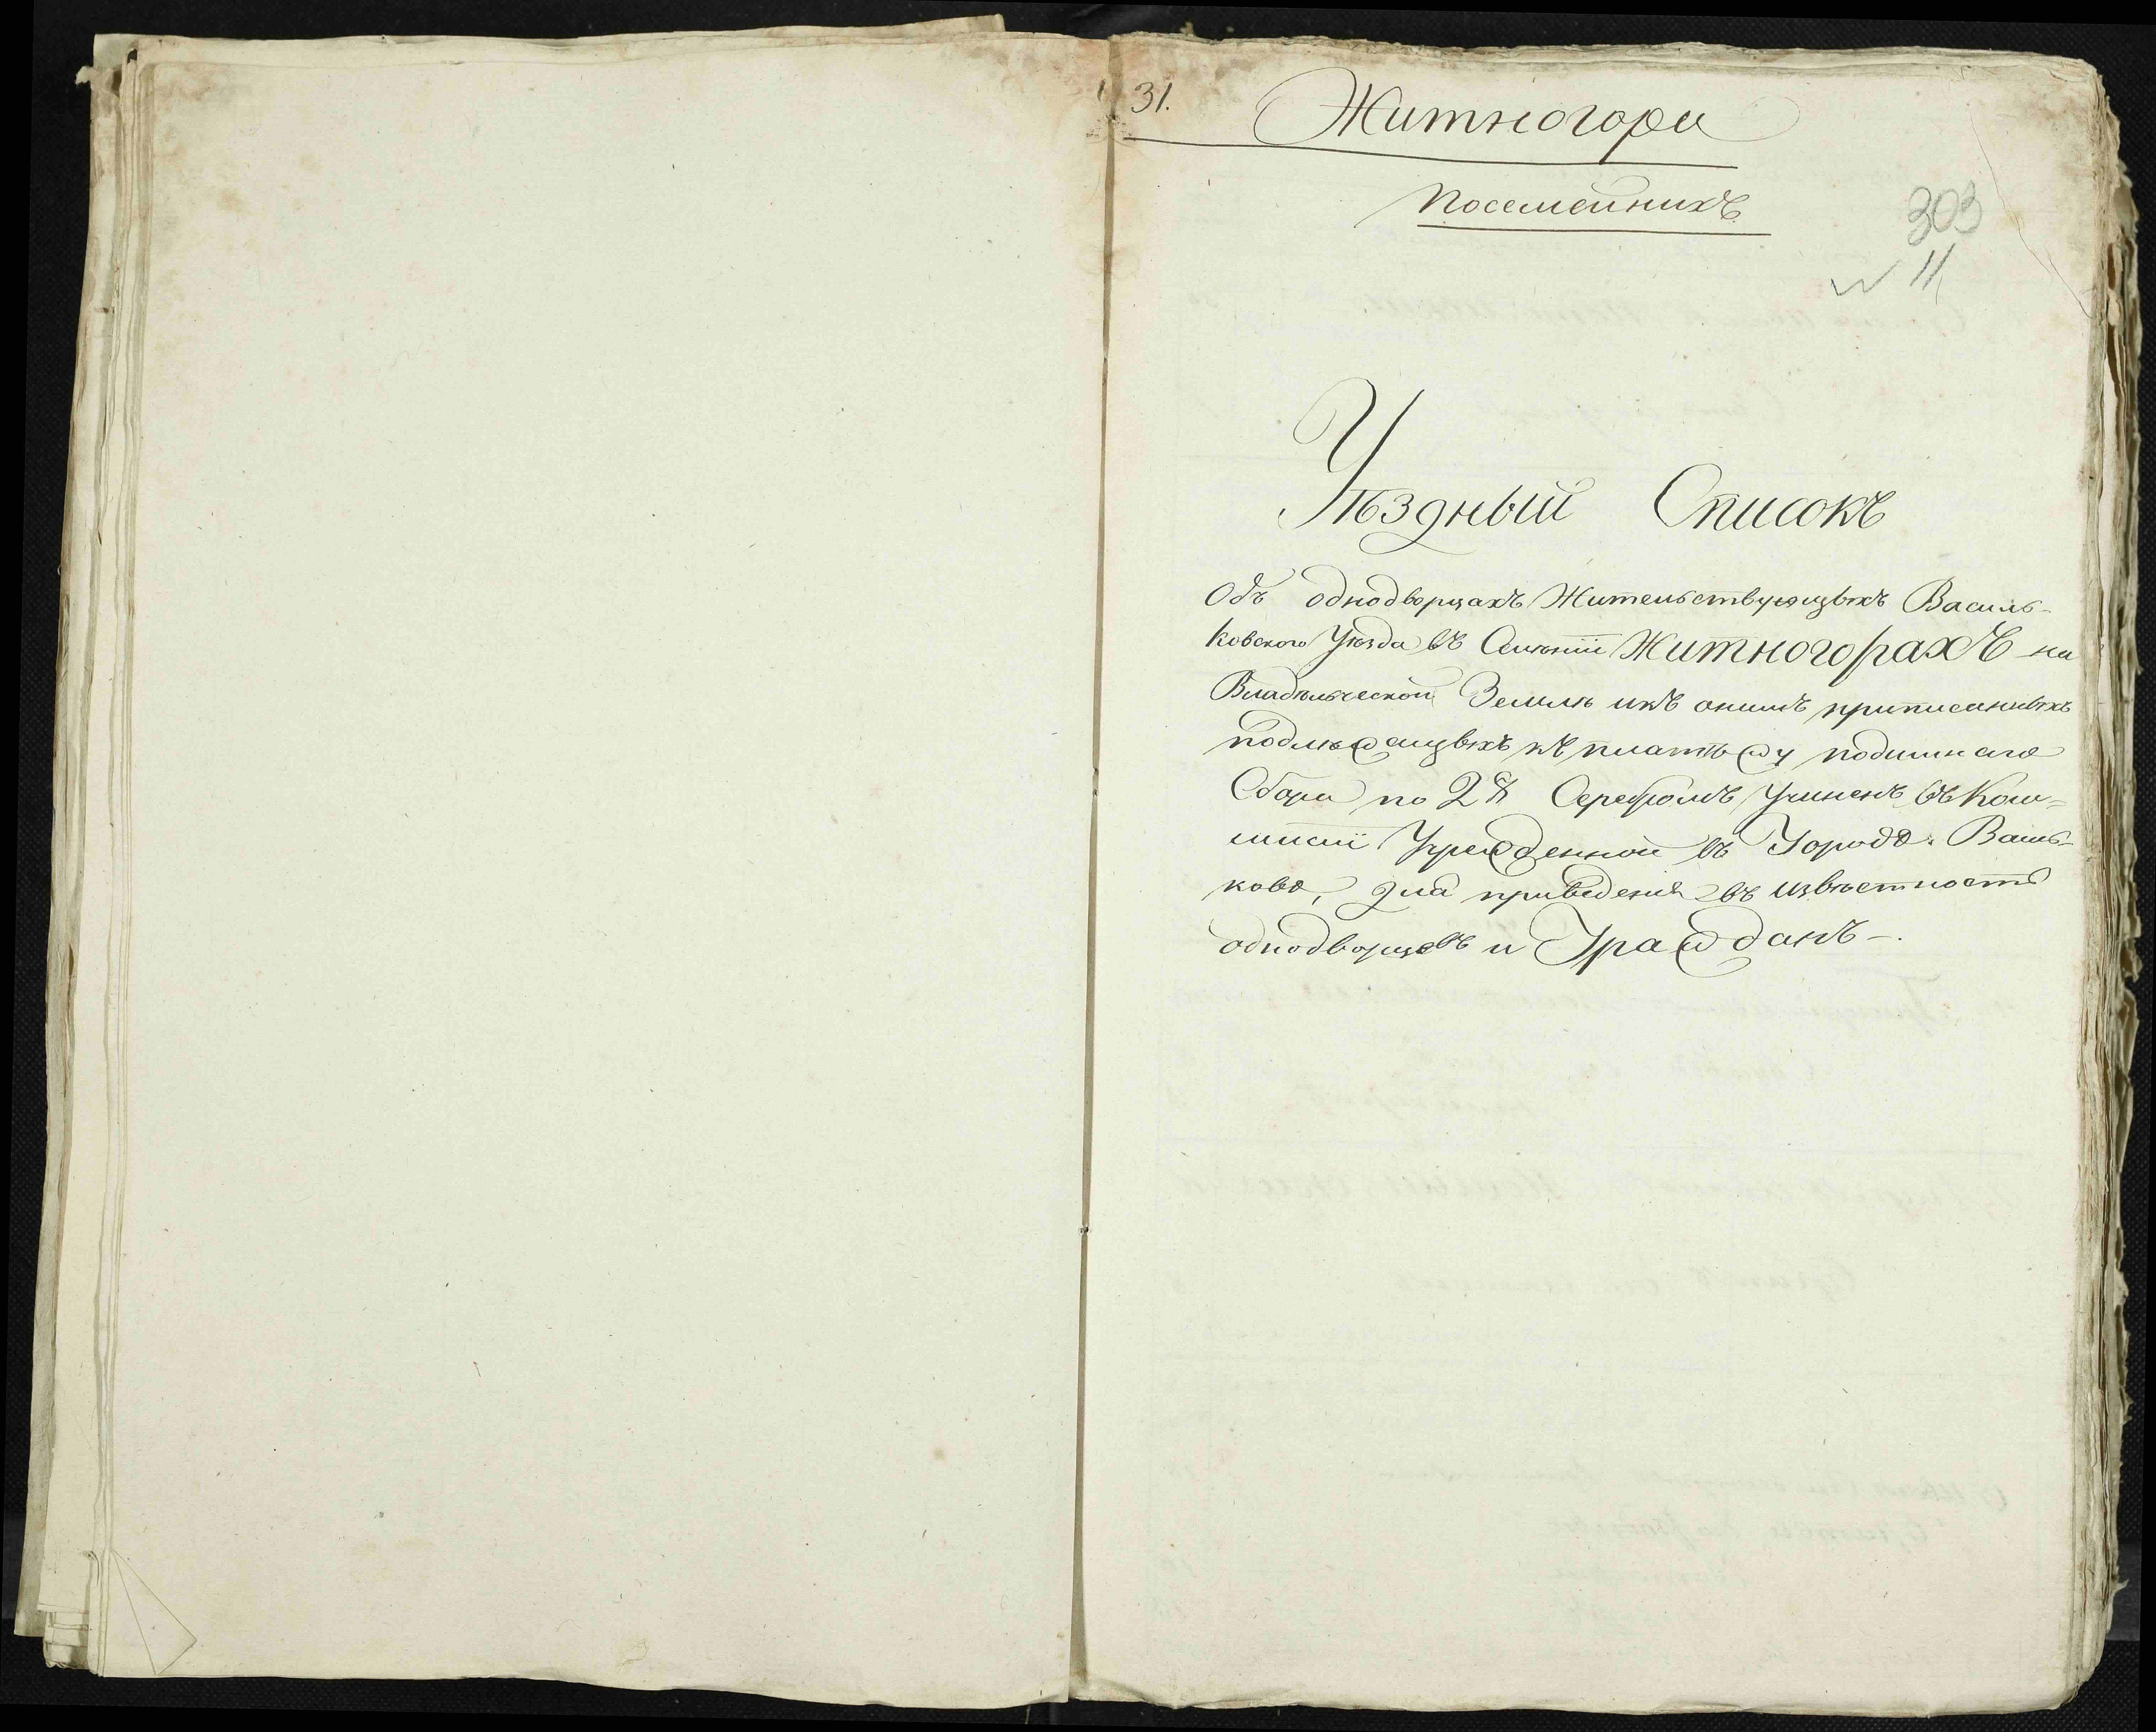 31. Житногори
Посемейникъ
303
11
Уѣздный Списокъ
Объ однодворцахъ Жительствующихъ Василь-
ковского Уѣзда въ Селѣнiи Житногорахъ на
Владѣльческой Землѣ икъ онимъ приписанныхъ
подлѣжащихъ къ платѣжу подимнаго
Сбора по 2 Серебромъ Учиненъ въ Ком=
мисiи Учрежденной въ Городѣ Василь-
ковѣ, для приведения въ извѣстность
однодворцовъ и Гражданъ -.